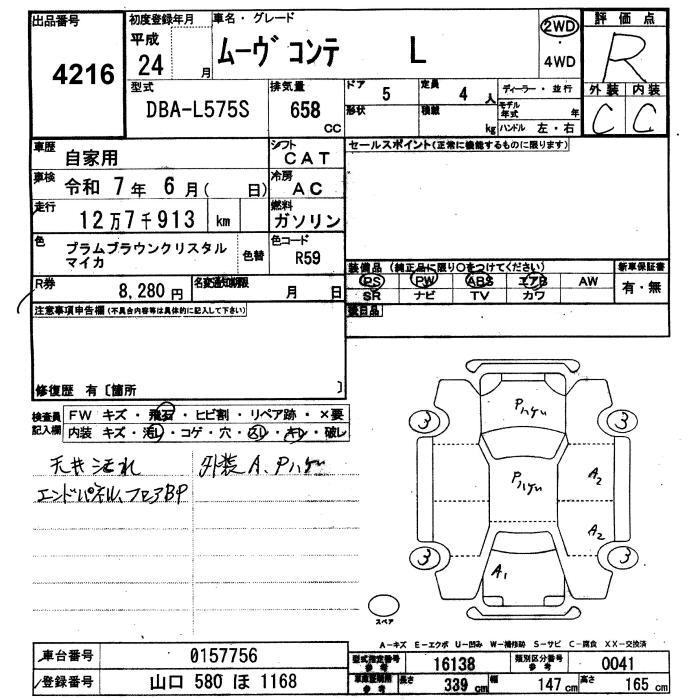 出品番号
4216
初度登録年月
平成
24 月
車名・グレード
ムーヴ コンテ L
2WD
・
4WD
評価点
R
外装 内装
C C
型式
DBA-L575S
排気量
658
CC
ドア
5
定員
4 人
形状
積載
kg
ディーラー・並行
モデル
年式 年
ハンドル 左・右
車歴
自家用
シフト
CAT
車検
令和 7年 6月( 日)
冷房
AC
走行
12万7千913 km
燃料
ガソリン
色
プラムブラウンクリスタル
マイカ
色替
色コード
R59
R券
8,280円
名変通知期限
月 日
セールスポイント(正常に機能するものに限ります)
装備品(純正品に限り○をつけてください)
PS PW ABS エアB AW
SR ナビ TV カワ
新車保証書
有・無
注意事項申告欄(不具合内容等は具体的に記入して下さい)
修復歴 有〔箇所 〕
検査員
記入欄
FW キズ・飛石・ヒビ割・リペア跡・×要
内装 キズ・汚レ・コゲ・穴・スレ・キレ・破レ
天井汚れ
外装A、Pハゲ
エンドパネル、フロアBP
3
3
3
3
Pハゲ
Pハゲ
A2
A2
A1
スペア
A-キズ E-エクボ U-凹み W-補修跡 S-サビ C-腐食 XX-交換済
車台番号
0157756
登録番号
山口 580 ほ 1168
型式指定番号
参考
16138
類別区分番号
参考
0041
長さ
339 cm
幅
147 cm
高さ
165 cm